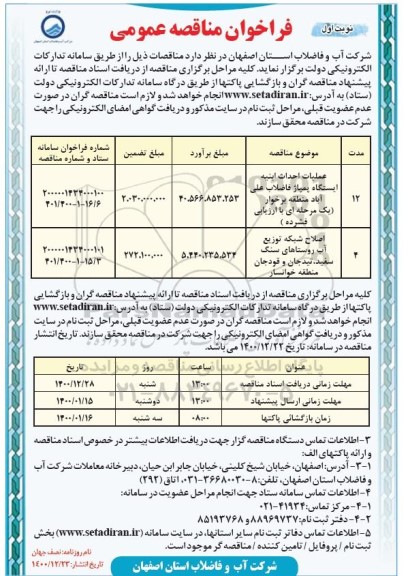 نوبت اول
فراخوان مناقصه عمومی
شرکت آب و فاضلاب استان اصفهان در نظر دارد مناقصات ذیل را از طریق سامانه تدارکات
الکترونیکی دولت برگزار نماید. کلیه مراحل برگزاری مناقصه از دریافت اسناد مناقصه تا ارائه
پیشنهاد مناقصه گران و بازگشایی پاکتها از طریق درگاه سامانه تدارکات الکترونیکی دولت
(ستاد) به آدرس: www.setadiran.ir انجام خواهد شد و لازم است مناقصه گران در صورت
عدم عضویت قبلی، مراحل ثبت نام در سایت مذکور و دریافت گواهی امضای الکترونیکی را جهت
شرکت در مناقصه محقق سازند.
مدت | موضوع مناقصه | مبلغ برآورد | مبلغ تضمین | شماره فراخوان سامانه ستاد و شماره مناقصه
۱۲ | عملیات احداث ابنیه ایستگاه پمپاژ فاضلاب علی آباد منطقه برخوار (یک مرحله ای با ارزیابی فشرده) | ۴۰.۵۶۶.۸۵۳.۲۵۳ | ۲.۰۳۰.۰۰۰.۰۰۰ | ۴۰۱/۴۰۰-۱-۱۶/۶
۴ | اصلاح شبکه توزیع آب روستاهای سنگ سفید، تیدجان و قودجان منطقه خوانسار | ۵.۴۴۰.۲۳۵.۵۳۴ | ۲۷۲.۱۰۰.۰۰۰ | ۴۰۱/۴۰۰-۱-۱۵/۳
کلیه مراحل برگزاری مناقصه از دریافت اسناد مناقصه تا ارائه پیشنهاد مناقصه گران و بازگشایی
پاکتها از طریق درگاه سامانه تدارکات الکترونیکی دولت (ستاد) به آدرس: www.setadiran.ir
انجام خواهد شد و لازم است مناقصه گران در صورت عدم عضویت قبلی، مراحل ثبت نام در سایت
مذکور و دریافت گواهی امضای الکترونیکی را جهت شرکت در مناقصه محقق سازند. تاریخ انتشار
مناقصه در سامانه: تاریخ ۱۴۰۰/۱۲/۲۲ می باشد.
عنوان | ساعت | روز | تاریخ
مهلت زمانی دریافت اسناد مناقصه | ۱۳:۰۰ | شنبه | ۱۴۰۰/۱۲/۲۸
مهلت زمانی ارسال پیشنهاد | ۱۳:۰۰ | دوشنبه | ۱۴۰۱/۰۱/۱۵
زمان بازگشائی پاکتها | ۰۸:۰۰ | سه شنبه | ۱۴۰۱/۰۱/۱۶
۳-اطلاعات تماس دستگاه مناقصه گزار جهت دریافت اطلاعات بیشتر در خصوص اسناد مناقصه
و ارائه پاکتهای الف:
۳-۱- آدرس: اصفهان، خیابان شیخ کلینی، خیابان جابر ابن حیان، دبیرخانه معاملات شرکت آب
و فاضلاب استان اصفهان، تلفن: ۸-۳۶۶۸۰۰۳۰-۰۳۱، اتاق (۲۹۲)
۴-اطلاعات تماس سامانه ستاد جهت انجام مراحل عضویت در سامانه:
۴-۱- مرکز تماس: ۴۱۹۳۴-۰۲۱
۴-۲- دفتر ثبت نام: ۸۸۹۶۹۷۳۷ و ۸۵۱۹۳۷۶۸
۵-اطلاعات تماس دفاتر ثبت نام سایر استانها، در سایت سامانه (www.setadiran.ir) بخش
ثبت نام / پروفایل / تامین کننده / مناقصه گر موجود است.
نام روزنامه: نصف جهان
تاریخ انتشار: ۱۴۰۰/۱۲/۲۳
شرکت آب و فاضلاب استان اصفهان